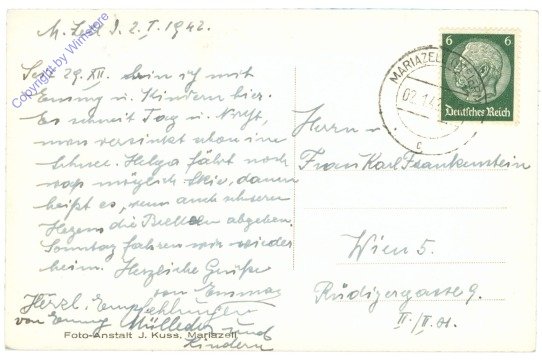 M. Zell d. 2. I. 1942.
Seit 29. XII. bin ich mit
Emmy u. Kindern hier.
Es schneit Tag u. Nacht,
man versinkt schon im
Schnee. Helga fährt noch
was möglich Skie, dann
heißt es, wenn auch schweren
Herzens die Bretteln abgeben.
Sonntag fahren wir wieder
heim. Herzliche Grüße
von
Herzl. Empfehlungen
von Emmy
und
Kindern
Foto-Anstalt J. Kuss, Mariazell
Copyright by Winstore
6 6
Deutsches Reich
MARIAZELL
02.1.42
c
Herrn u.
Frau Karl Frankenstein
Wien 5.
Rüdigergasse 9.